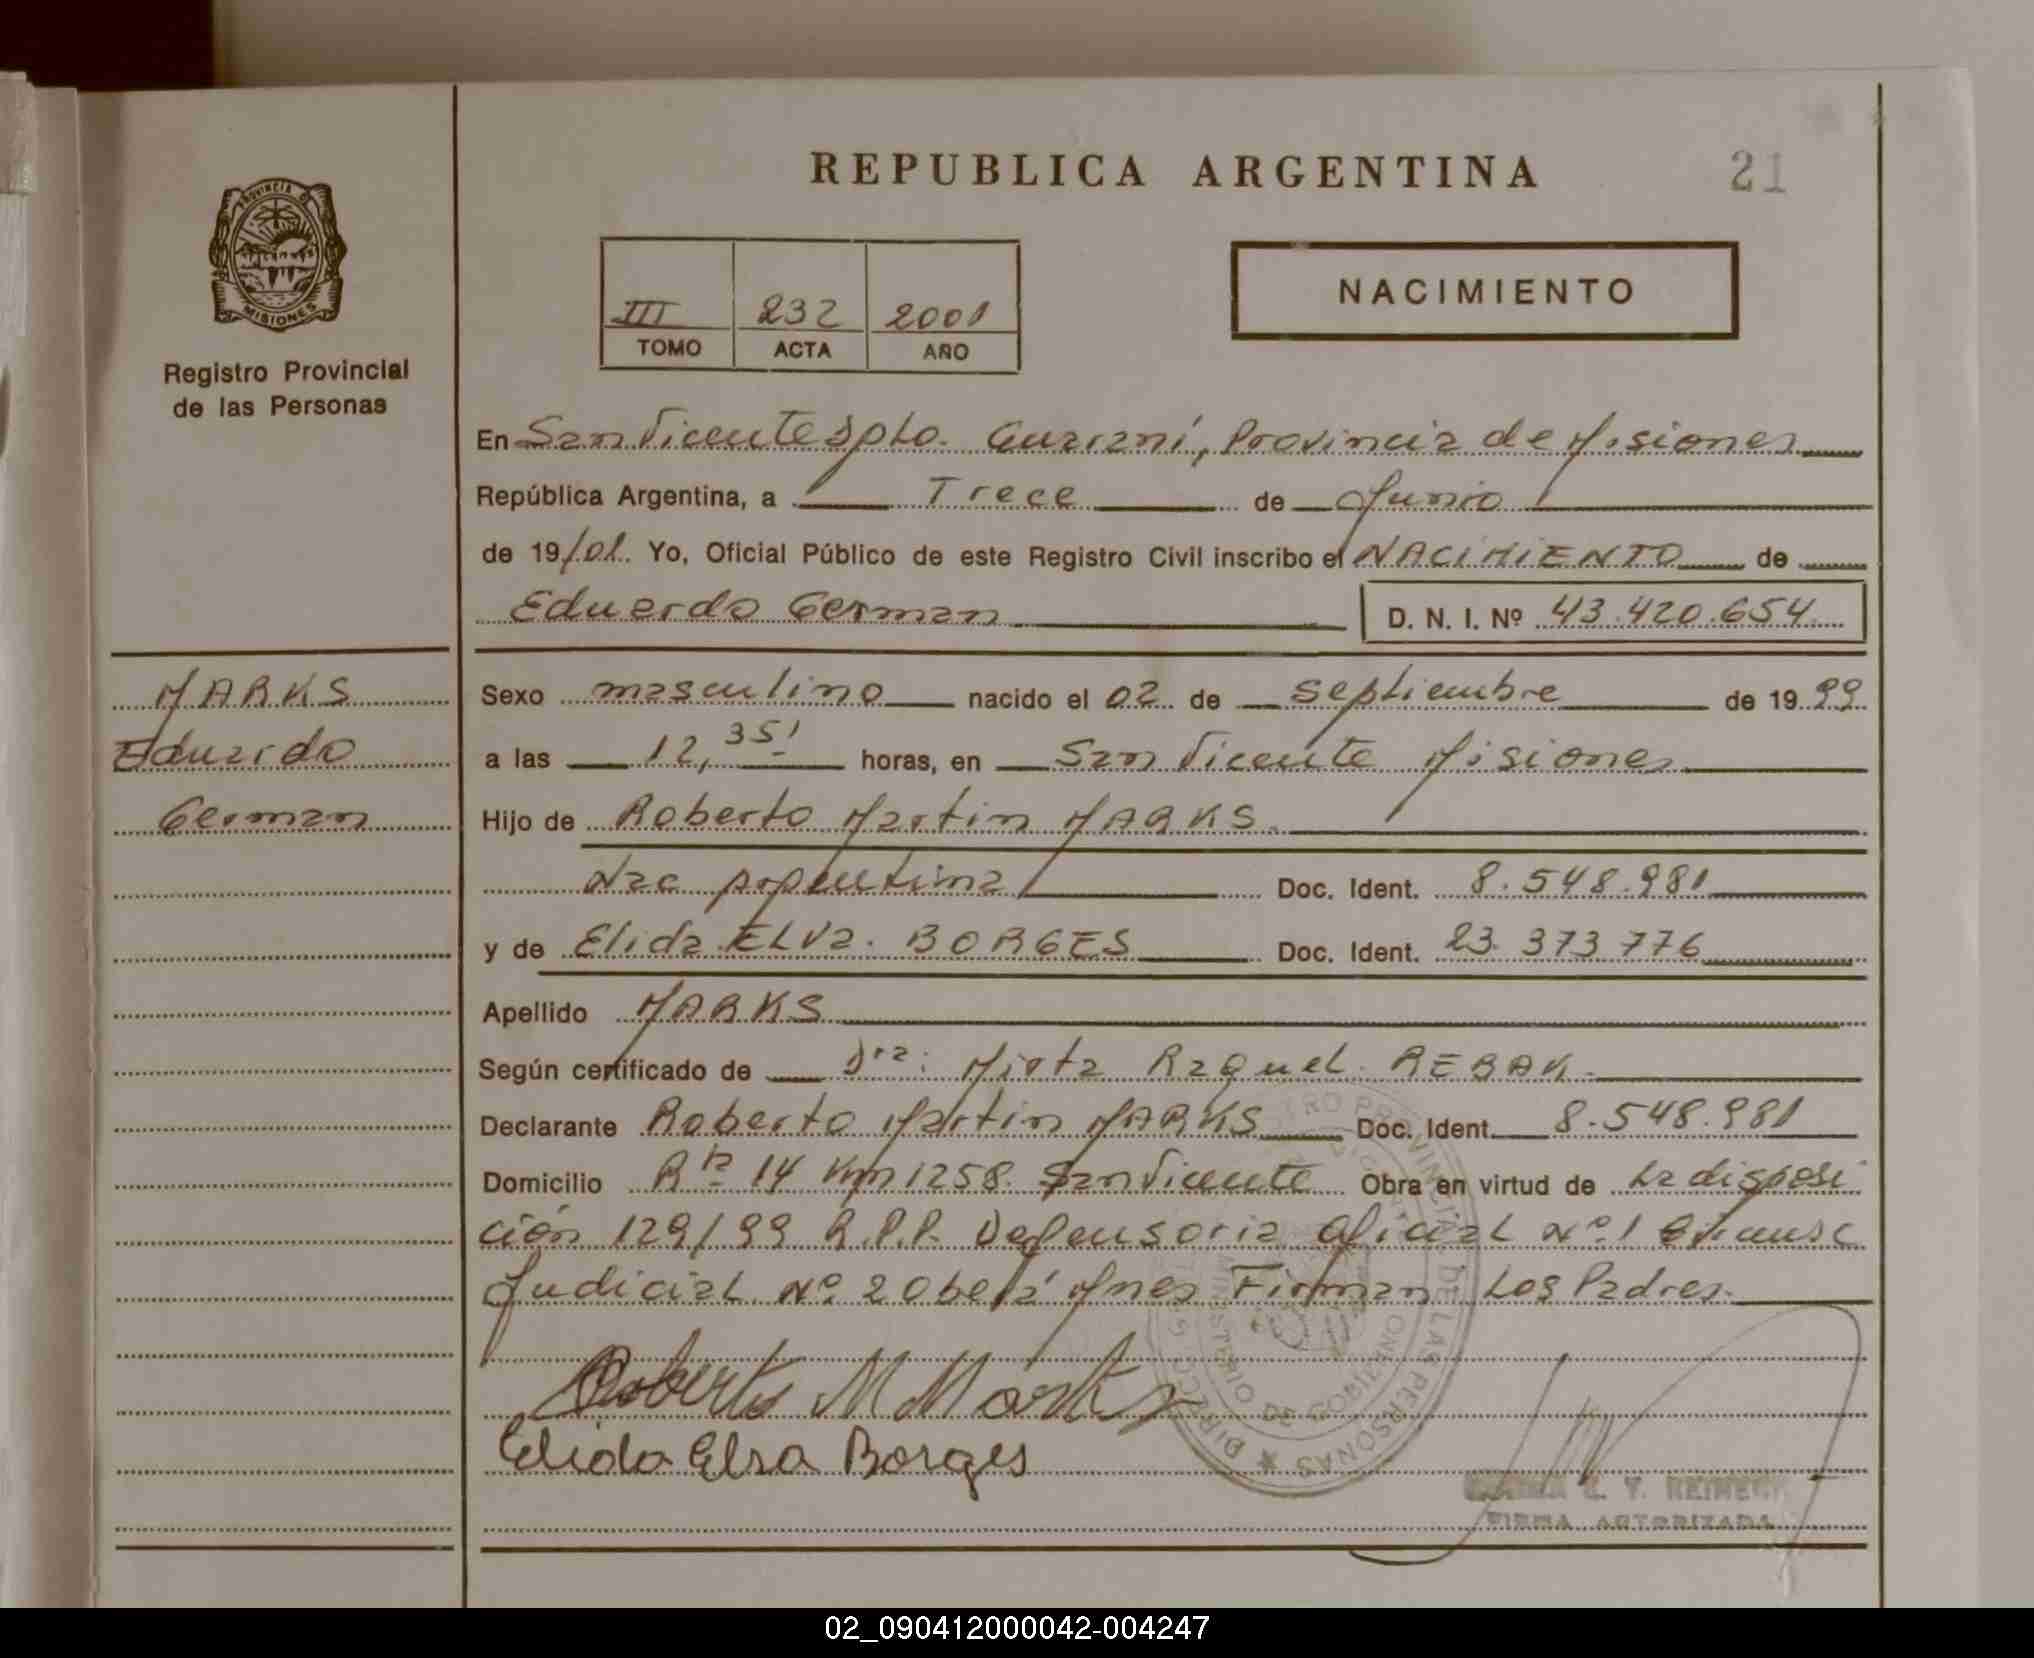 REPUBLICA ARGENTINA
21
PROVINCIA D
MISIONES
Registro Provincial
de las Personas
III 232 2001
TOMO ACTA AÑO
NACIMIENTO
En San Vicente Dpto. Guaraní, Provincia de Misiones
República Argentina, a Trece de Junio
de 19/01. Yo, Oficial Público de este Registro Civil inscribo el NACIMIENTO de
Eduardo German D. N. I. Nº 43.420.654
MARKS
Eduardo
German
Sexo masculino nacido el 02 de septiembre de 1999
a las 12,35' horas, en San Vicente Misiones
Hijo de Roberto Martin MARKS.
Nac argentina Doc. Ident. 8.548.981
y de Elida ELVA. BORGES Doc. Ident. 23.373 776
Apellido MARKS
Según certificado de Dra: Mirta Raquel REBAK.
Declarante Roberto Martin MARKS Doc. Ident. 8.548.981
Domicilio Rta 14 Km 1258. San Vicente Obra en virtud de La disposi
ción 129/99 R.P.P. Defensoria Oficial Nº 1 Circunsc
Judicial Nº 2 Oberá Mnes Firman Los Padres.
Roberto M Marks
Elida Elva Borges
FIRMA AUTORIZADA
02_090412000042-004247